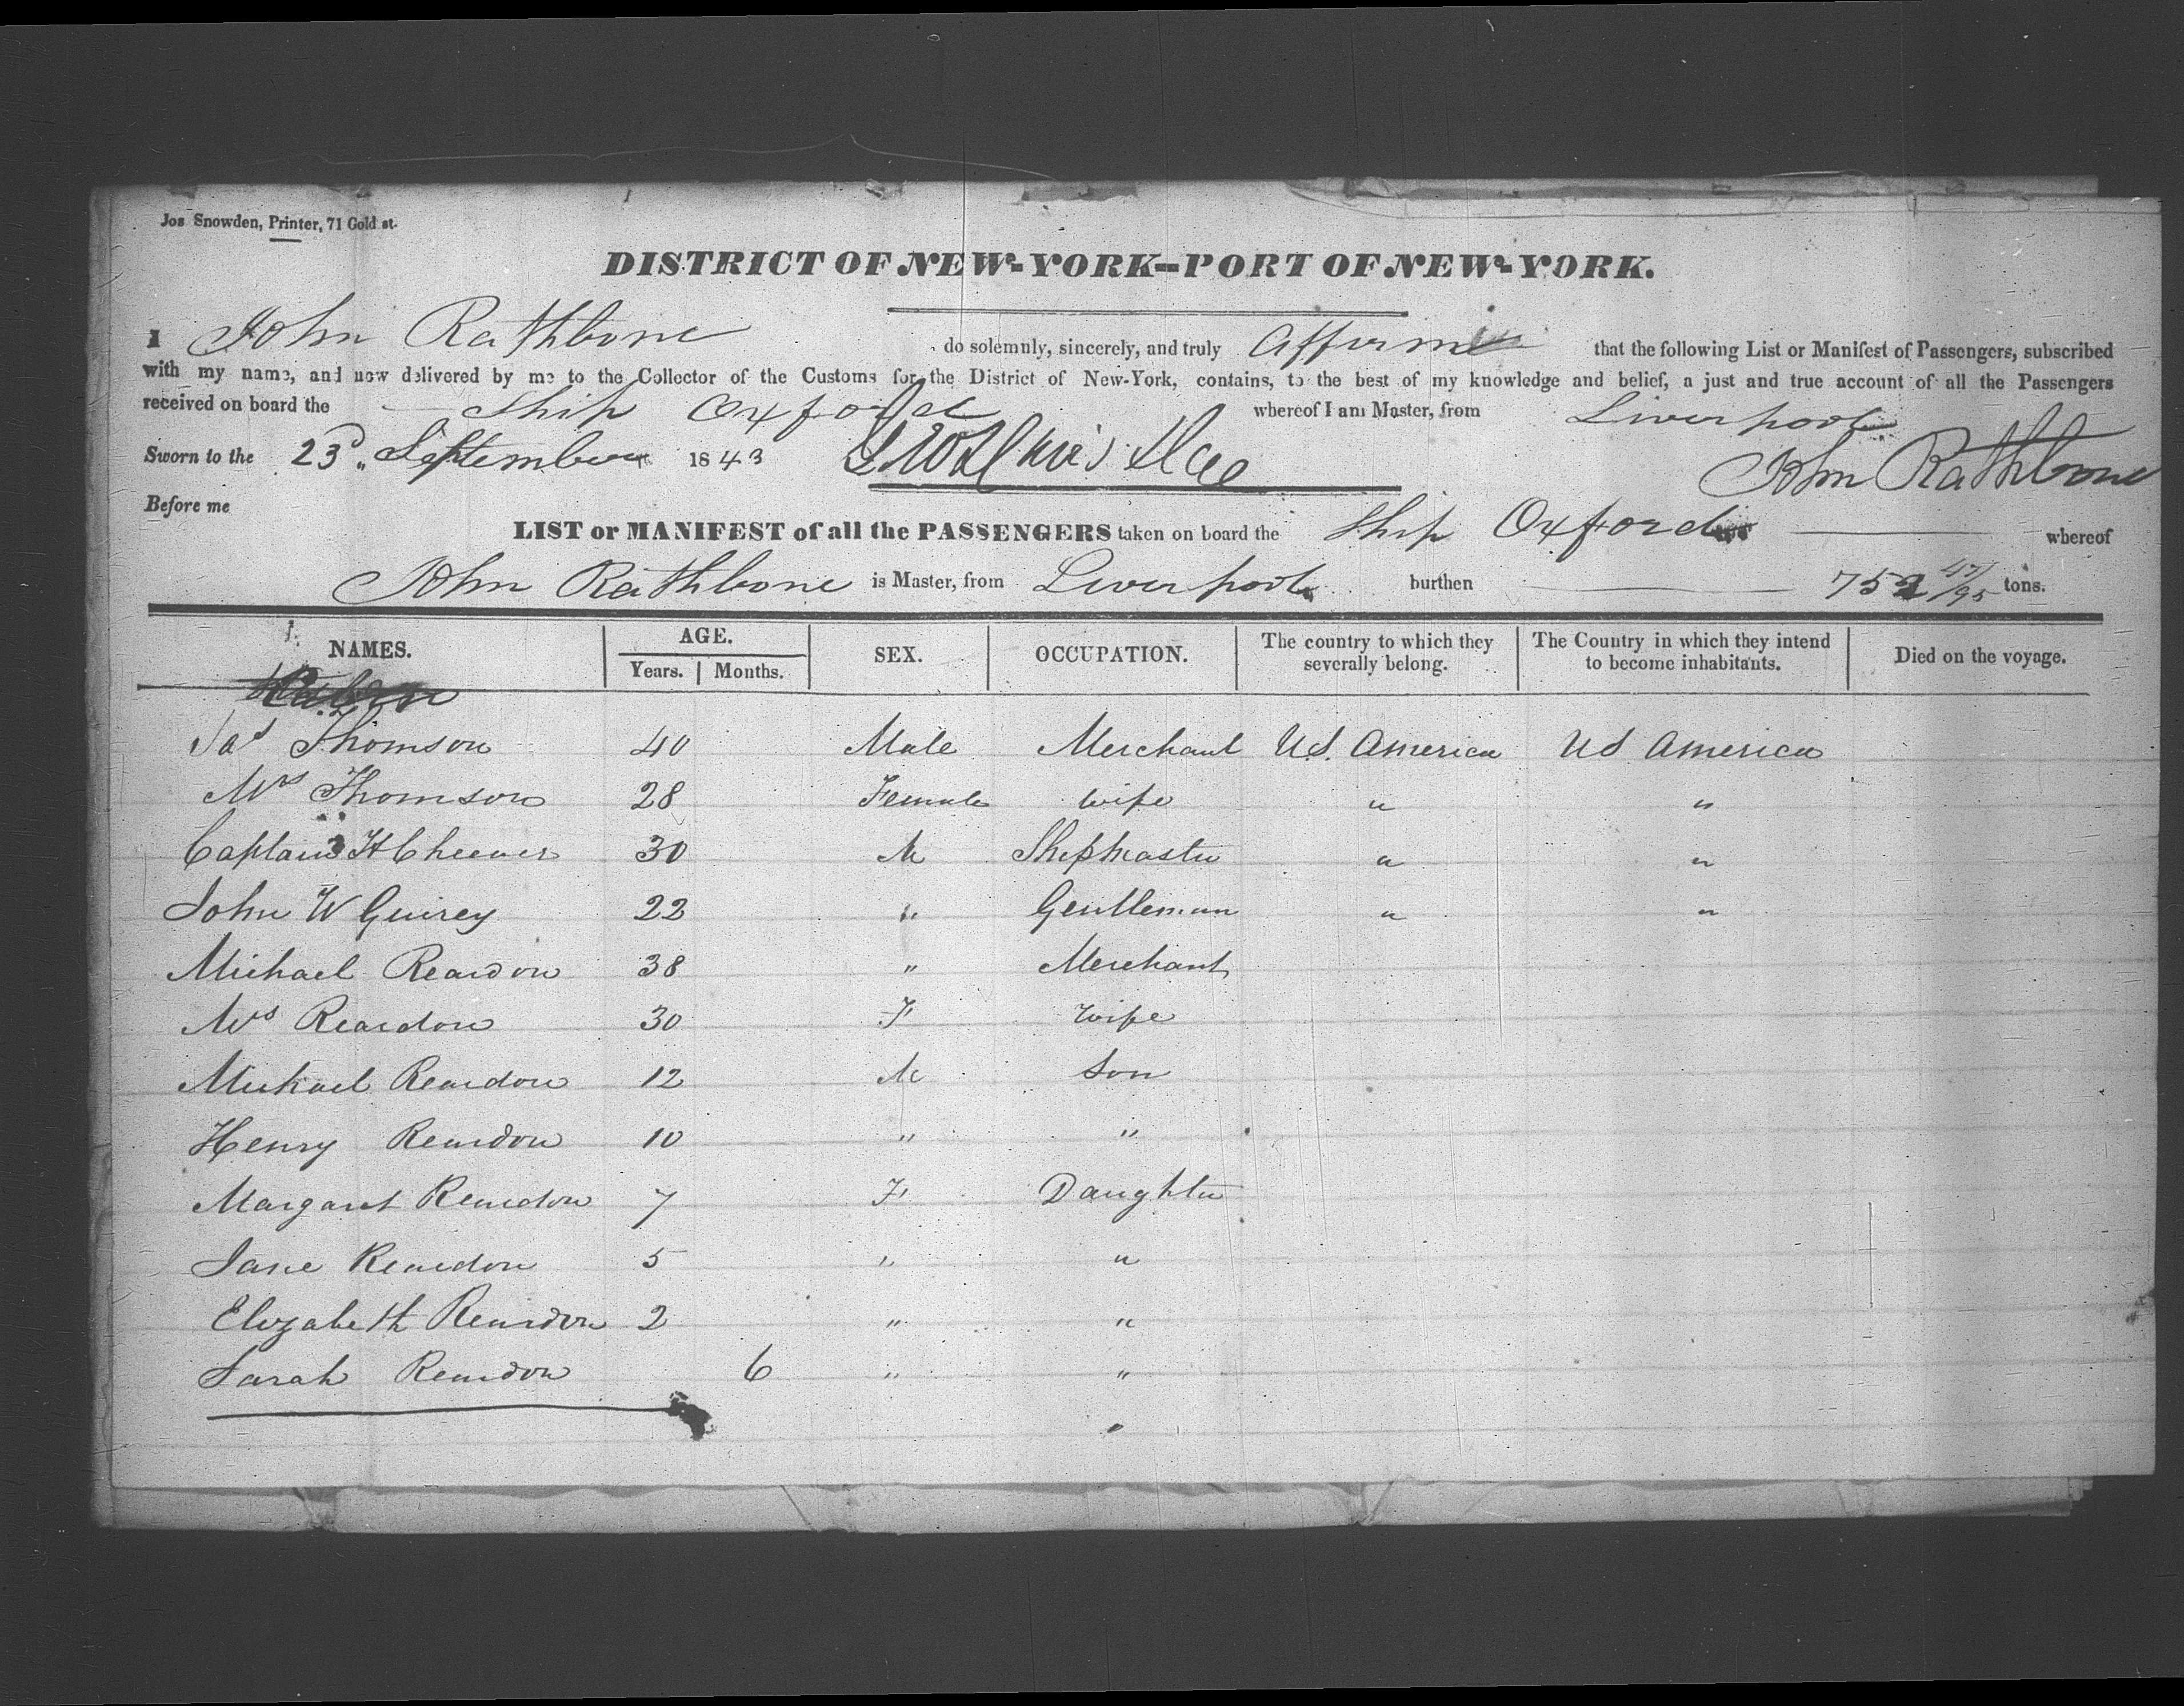 Jos Snowden, Printer, 71 Gold st.
DISTRICT OF NEW-YORK--PORT OF NEW-YORK.
I John Rathbone do solemnly, sincerely, and truly Affirm that the following List or Manifest of Passengers, subscribed
with my name, and now delivered by me to the Collector of the Customs for the District of New-York, contains, to the best of my knowledge and belief, a just and true account of all the Passengers
received on board the Ship Oxford whereof I am Master, from Liverpool
Sworn to the 23d September 1843 John Rathbone
Before me
LIST or MANIFEST of all the PASSENGERS taken on board the Ship Oxford whereof
John Rathbone is Master, from Liverpool burthen 752 47/95 tons.
NAMES. AGE. Years. Months. SEX. OCCUPATION. The country to which they severally belong. The Country in which they intend to become inhabitants. Died on the voyage.
Jas Thomson 40 Male Merchant U.S. America US America
Mrs Thomson 28 Female Wife " "
Captain H Cheever 30 M Shipmaster " "
John W Guirey 22 " Gentleman " "
Michael Reardon 38 " Merchant
Mrs Reardon 30 F Wife
Michael Reardon 12 M Son
Henry Reardon 10 " "
Margaret Reardon 7 F Daughter
Jane Reardon 5 " "
Elizabeth Reardon 2 " "
Sarah Reardon 6 " "